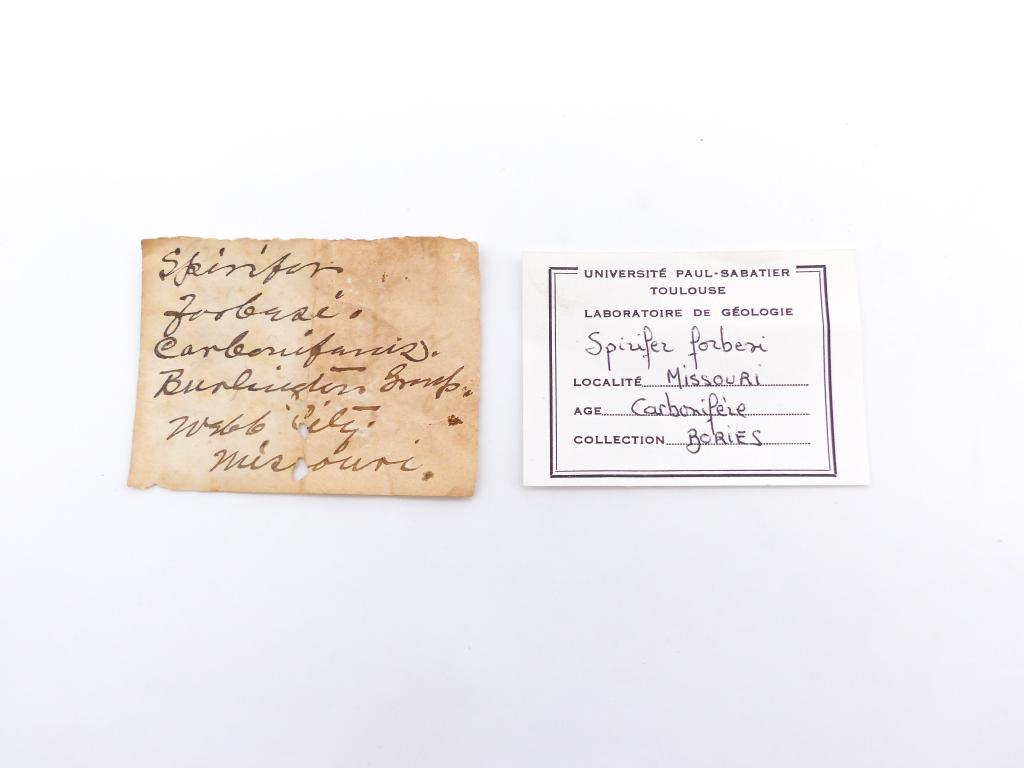 Spirifer
forbesi.
Carboniferous.
Burlington Group.
Webb City.
Missouri.
UNIVERSITÉ PAUL-SABATIER
TOULOUSE
LABORATOIRE DE GÉOLOGIE
Spirifer forbesi
LOCALITÉ MISSOURI
AGE Carbonifère
COLLECTION BORIES